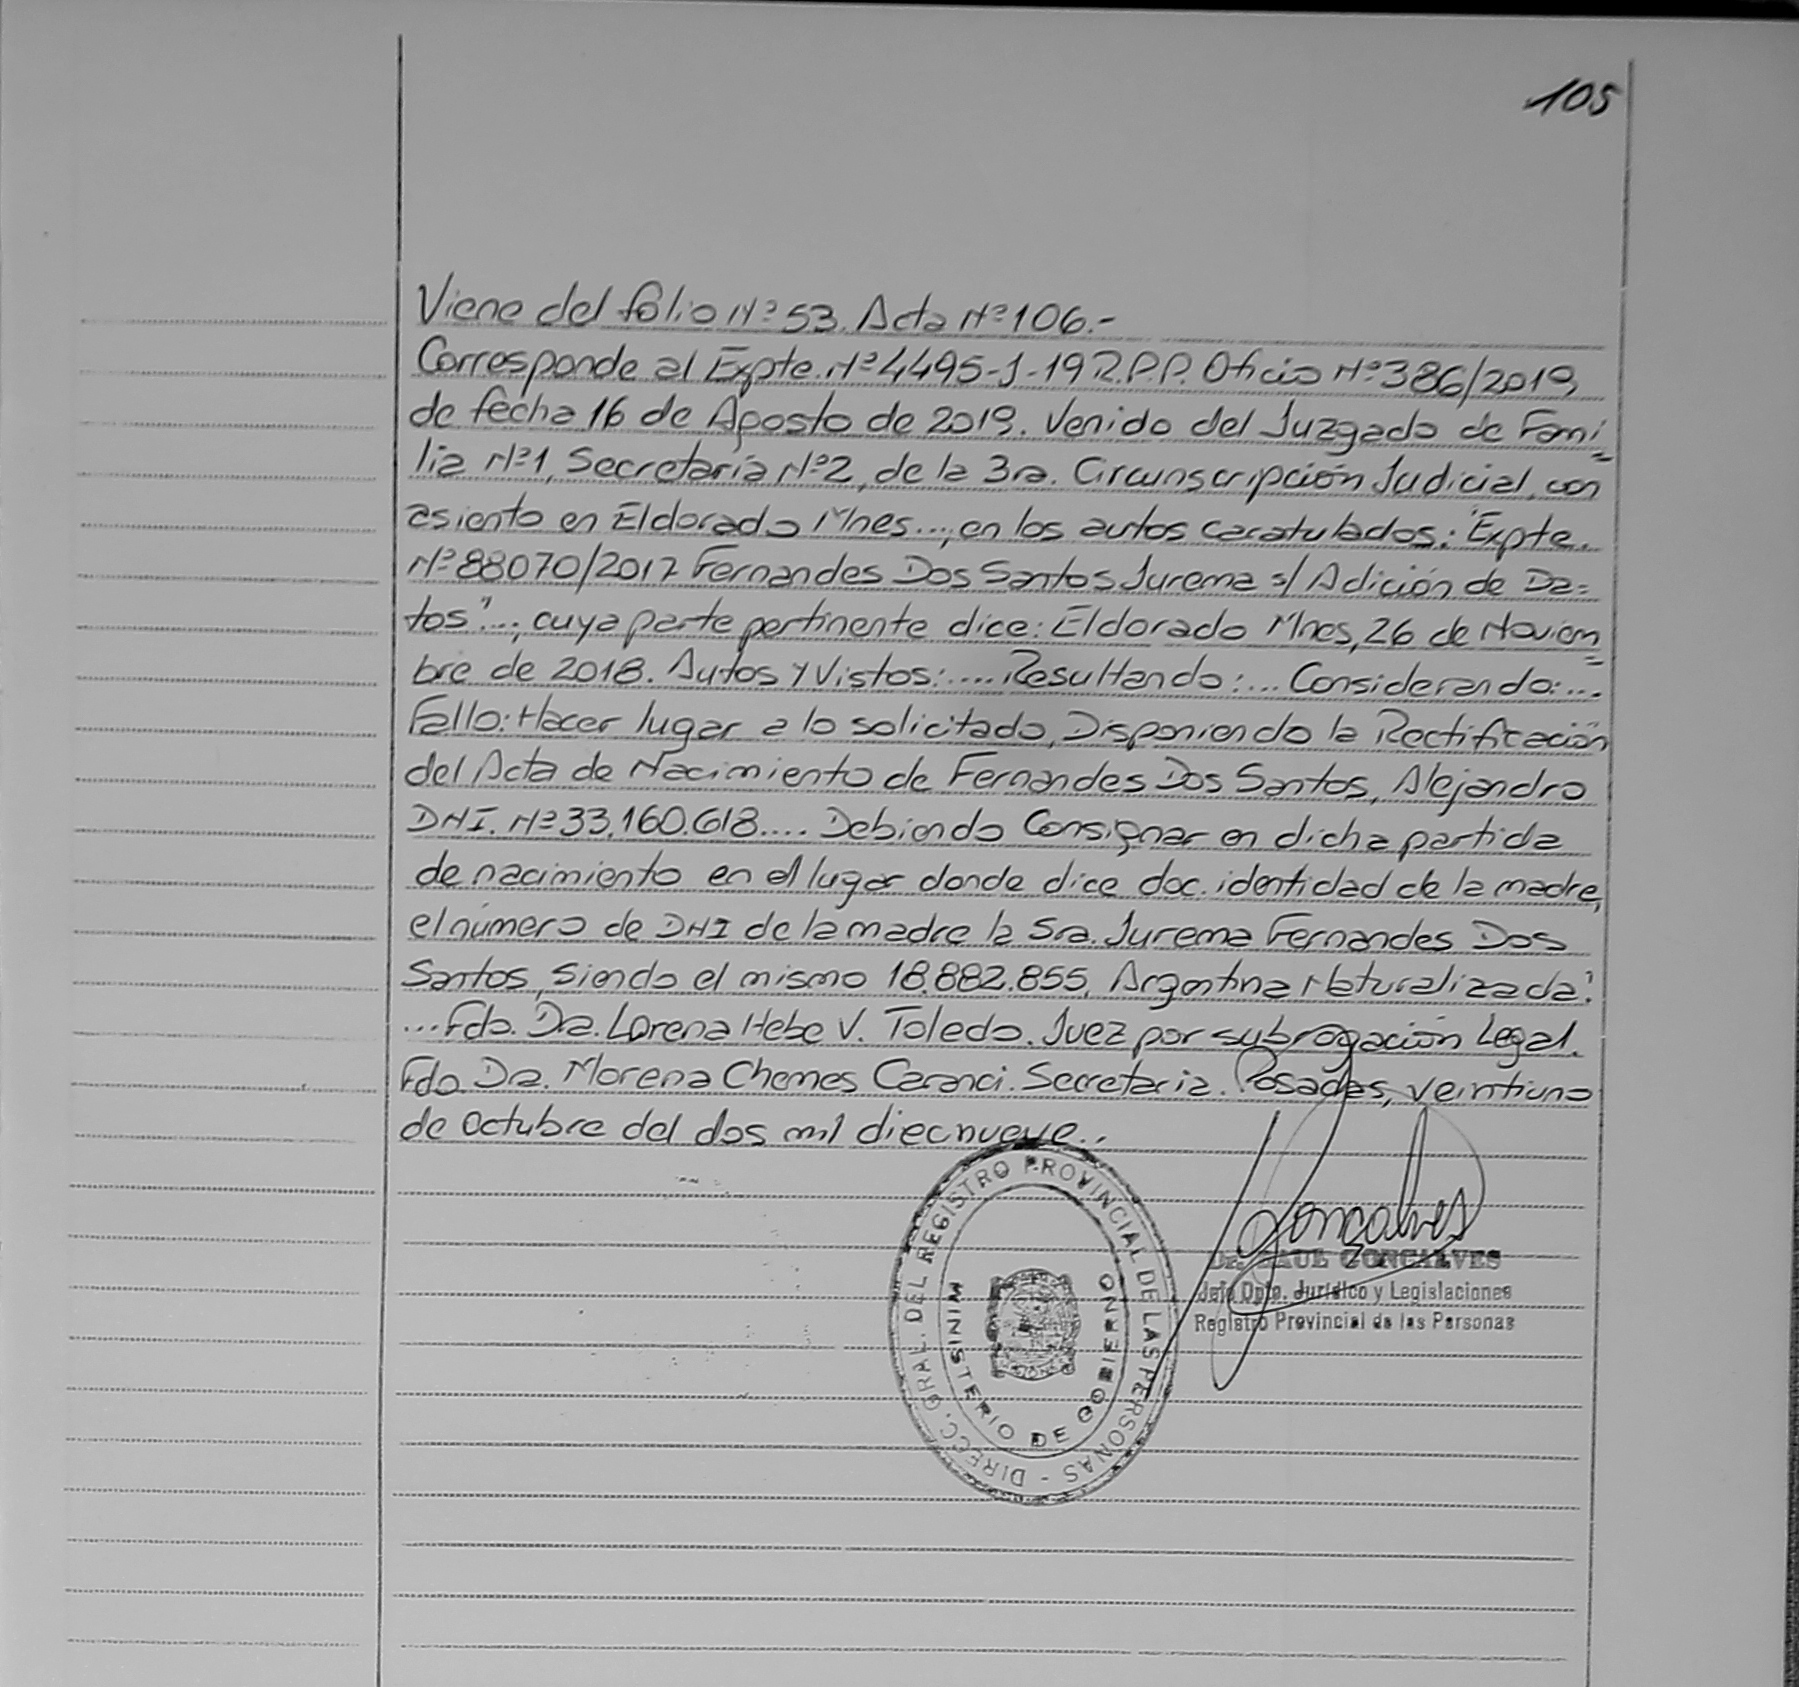 105
Viene del folio Nº 53. Acta Nº 106.-
Corresponde al Expte. Nº 4495-J-19 R.P.P. Oficio Nº 386/2019,
de fecha 16 de Agosto de 2019. Venido del Juzgado de Fami=
lia Nº1, Secretaría Nº2, de la 3ra. Circunscripción Judicial, con
asiento en Eldorado Mnes...; en los autos caratulados: "Expte.
Nº 88070/2017 Fernandes Dos Santos Jurema s/ Adición de Da=
tos"...; cuya parte pertinente dice: Eldorado Mnes, 26 de Noviem=
bre de 2018. Autos y Vistos:.... Resultando:... Considerando:...
Fallo: Hacer lugar a lo solicitado, Disponiendo la Rectificación
del Acta de Nacimiento de Fernandes Dos Santos, Alejandro
DNI. Nº 33.160.618.... Debiendo Consignar en dicha partida
de nacimiento en el lugar donde dice doc. identidad de la madre,
el número de DNI de la madre la Sra. Jurema Fernandes Dos
Santos, siendo el mismo 18.882.855, Argentina Naturalizada".
...Fdo. Dra. Lorena Hebe V. Toledo. Juez por subrogación Legal.
Fdo Dra. Morena Chemes Caranci. Secretaria. Posadas, veintiuno
de Octubre del dos mil diecnueve..
DIRECC. GRAL. DEL REGISTRO PROVINCIAL DE LAS PERSONAS -
MINISTERIO DE GOBIERNO
Goncalves
Dr. RAUL GONCALVES
Jefe Dpto. Jurídico y Legislaciones
Registro Provincial de las Personas